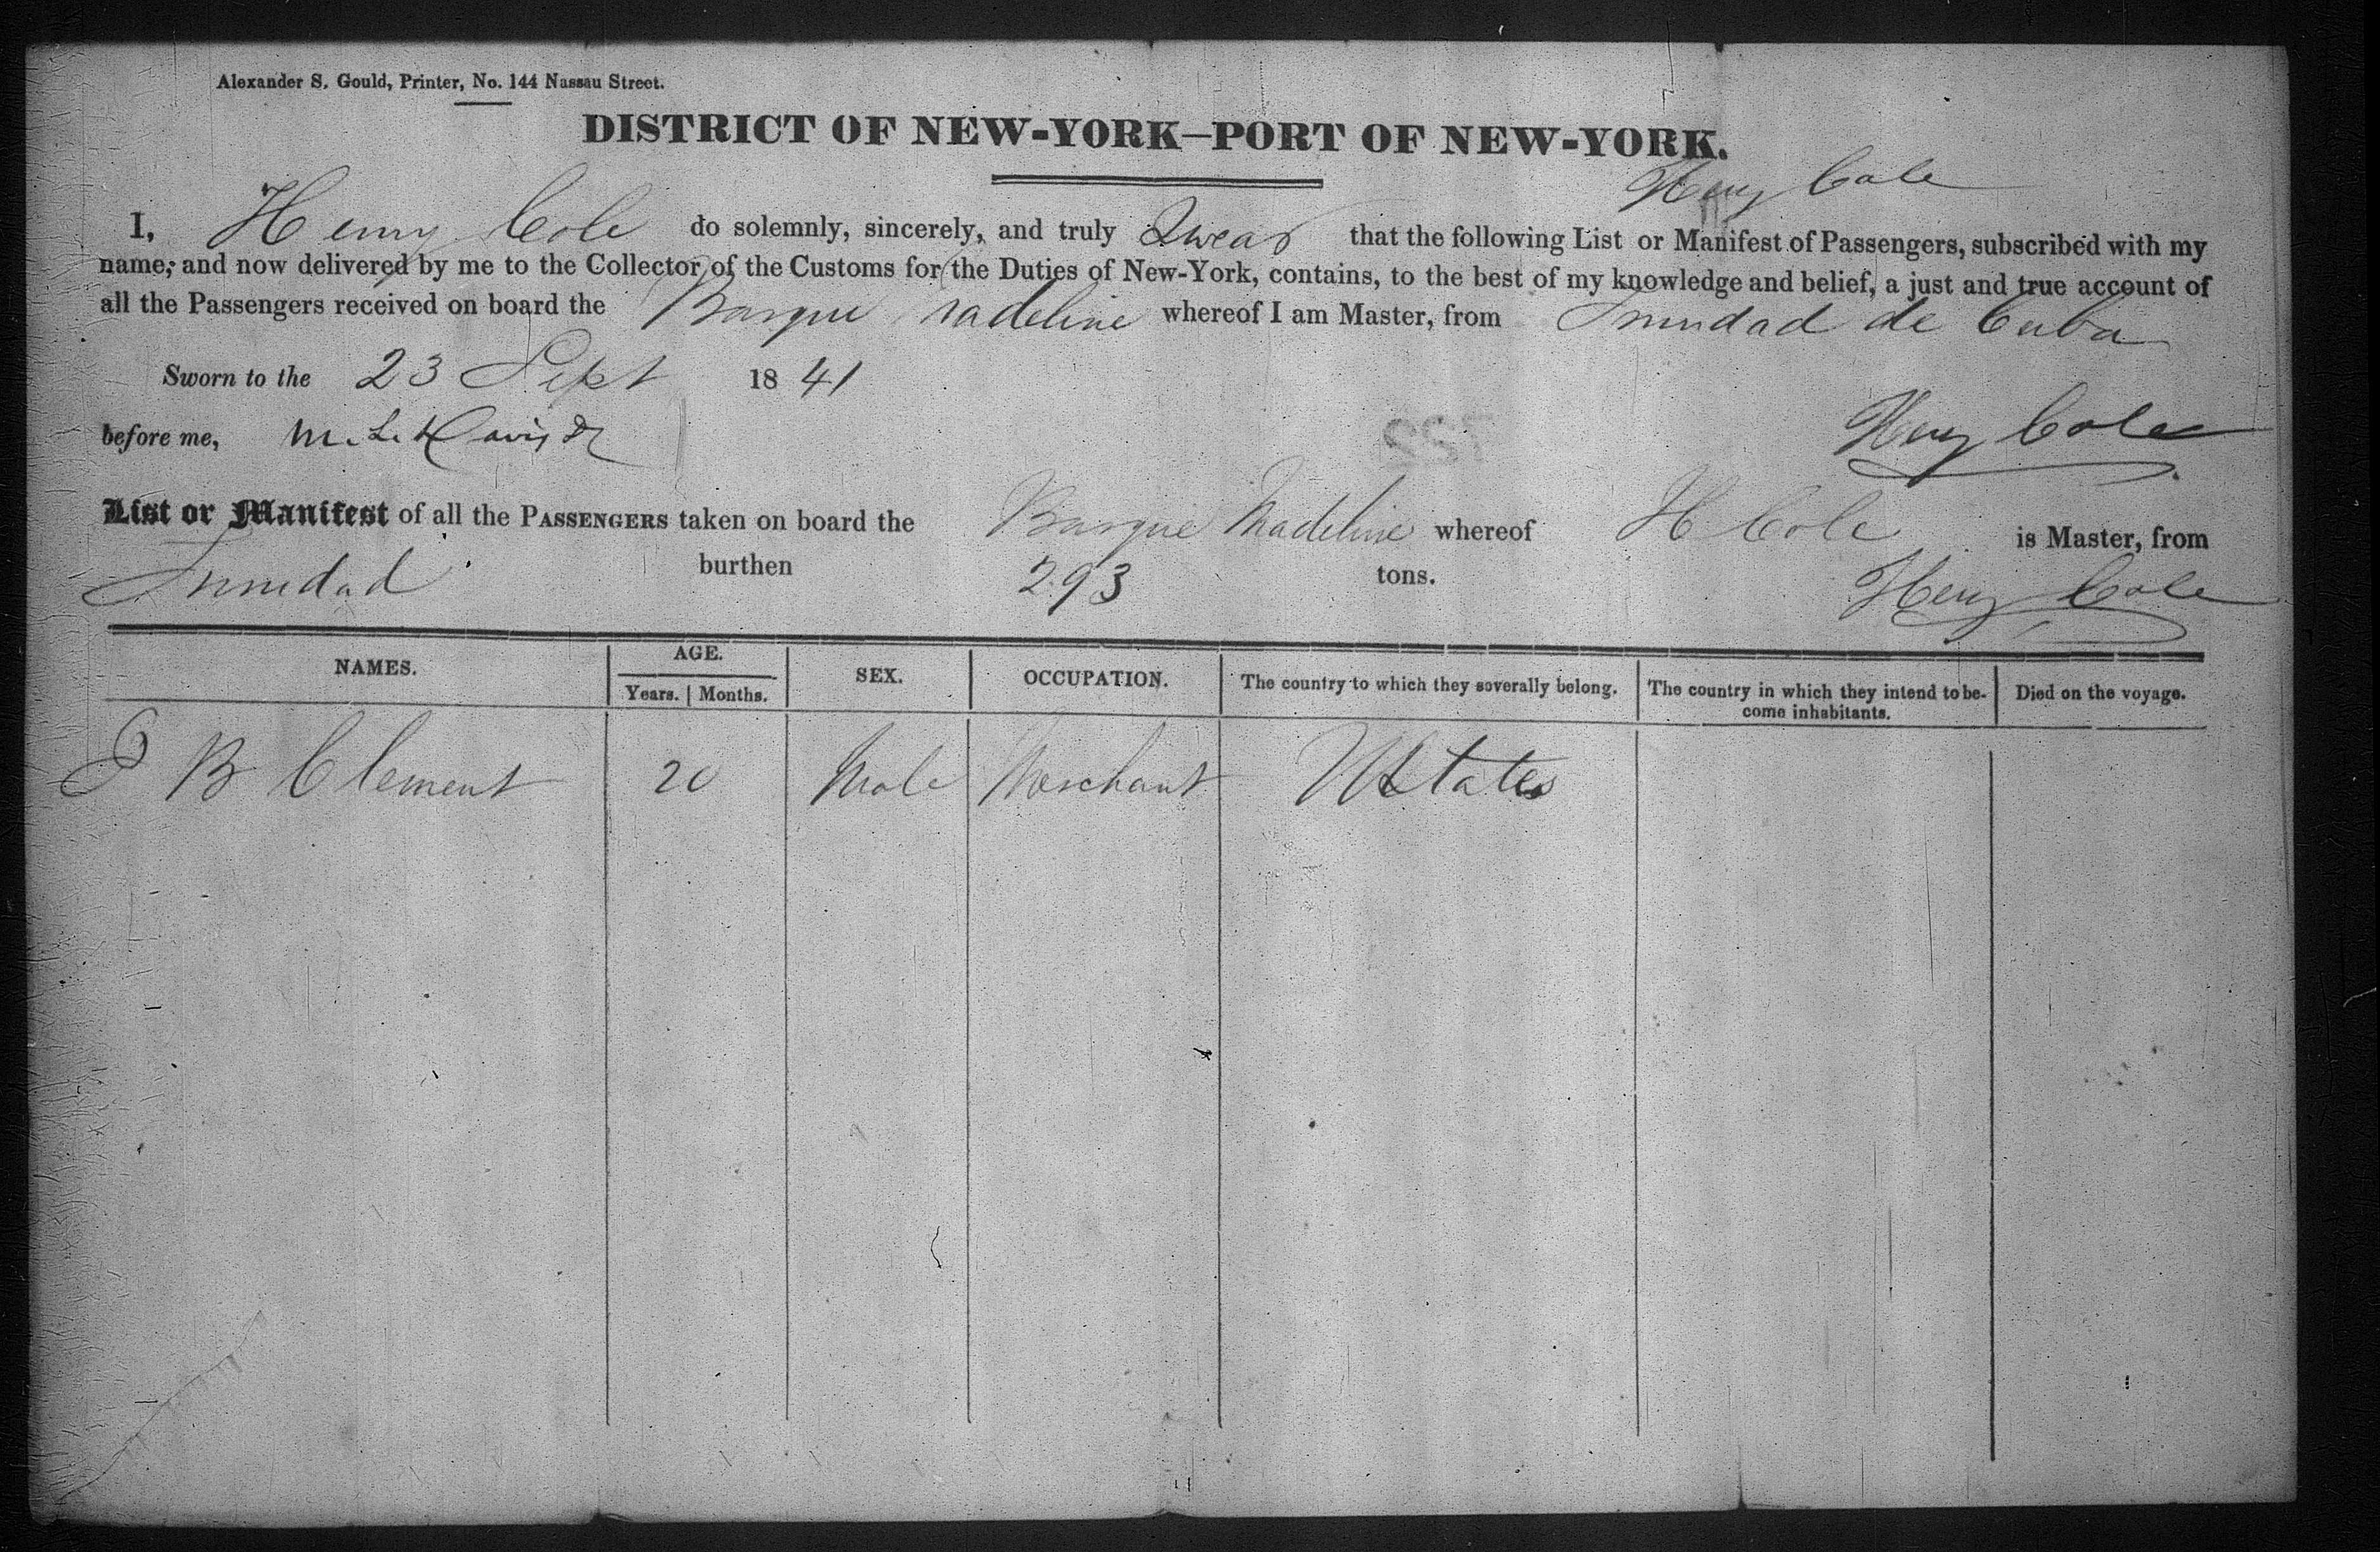 Alexander S. Gould, Printer, No. 144 Nassau Street.
DISTRICT OF NEW-YORK—PORT OF NEW-YORK.
Henry Cole
I, Henry Cole do solemnly, sincerely, and truly Swear that the following List or Manifest of Passengers, subscribed with my
name, and now delivered by me to the Collector of the Customs for the Duties of New-York, contains, to the best of my knowledge and belief, a just and true account of
all the Passengers received on board the Barque Madeline whereof I am Master, from Trinidad de Cuba
Sworn to the 23 Sept 1841
Henry Cole
before me, M. L. Davis
722
List or Manifest of all the PASSENGERS taken on board the Barque Madeline whereof H Cole is Master, from
Trinidad burthen 293 tons.
Henry Cole
NAMES. AGE. SEX. OCCUPATION. The country to which they severally belong. The country in which they intend to be-
come inhabitants. Died on the voyage.
Years. Months.
B Clement 20 Male Merchant UStates